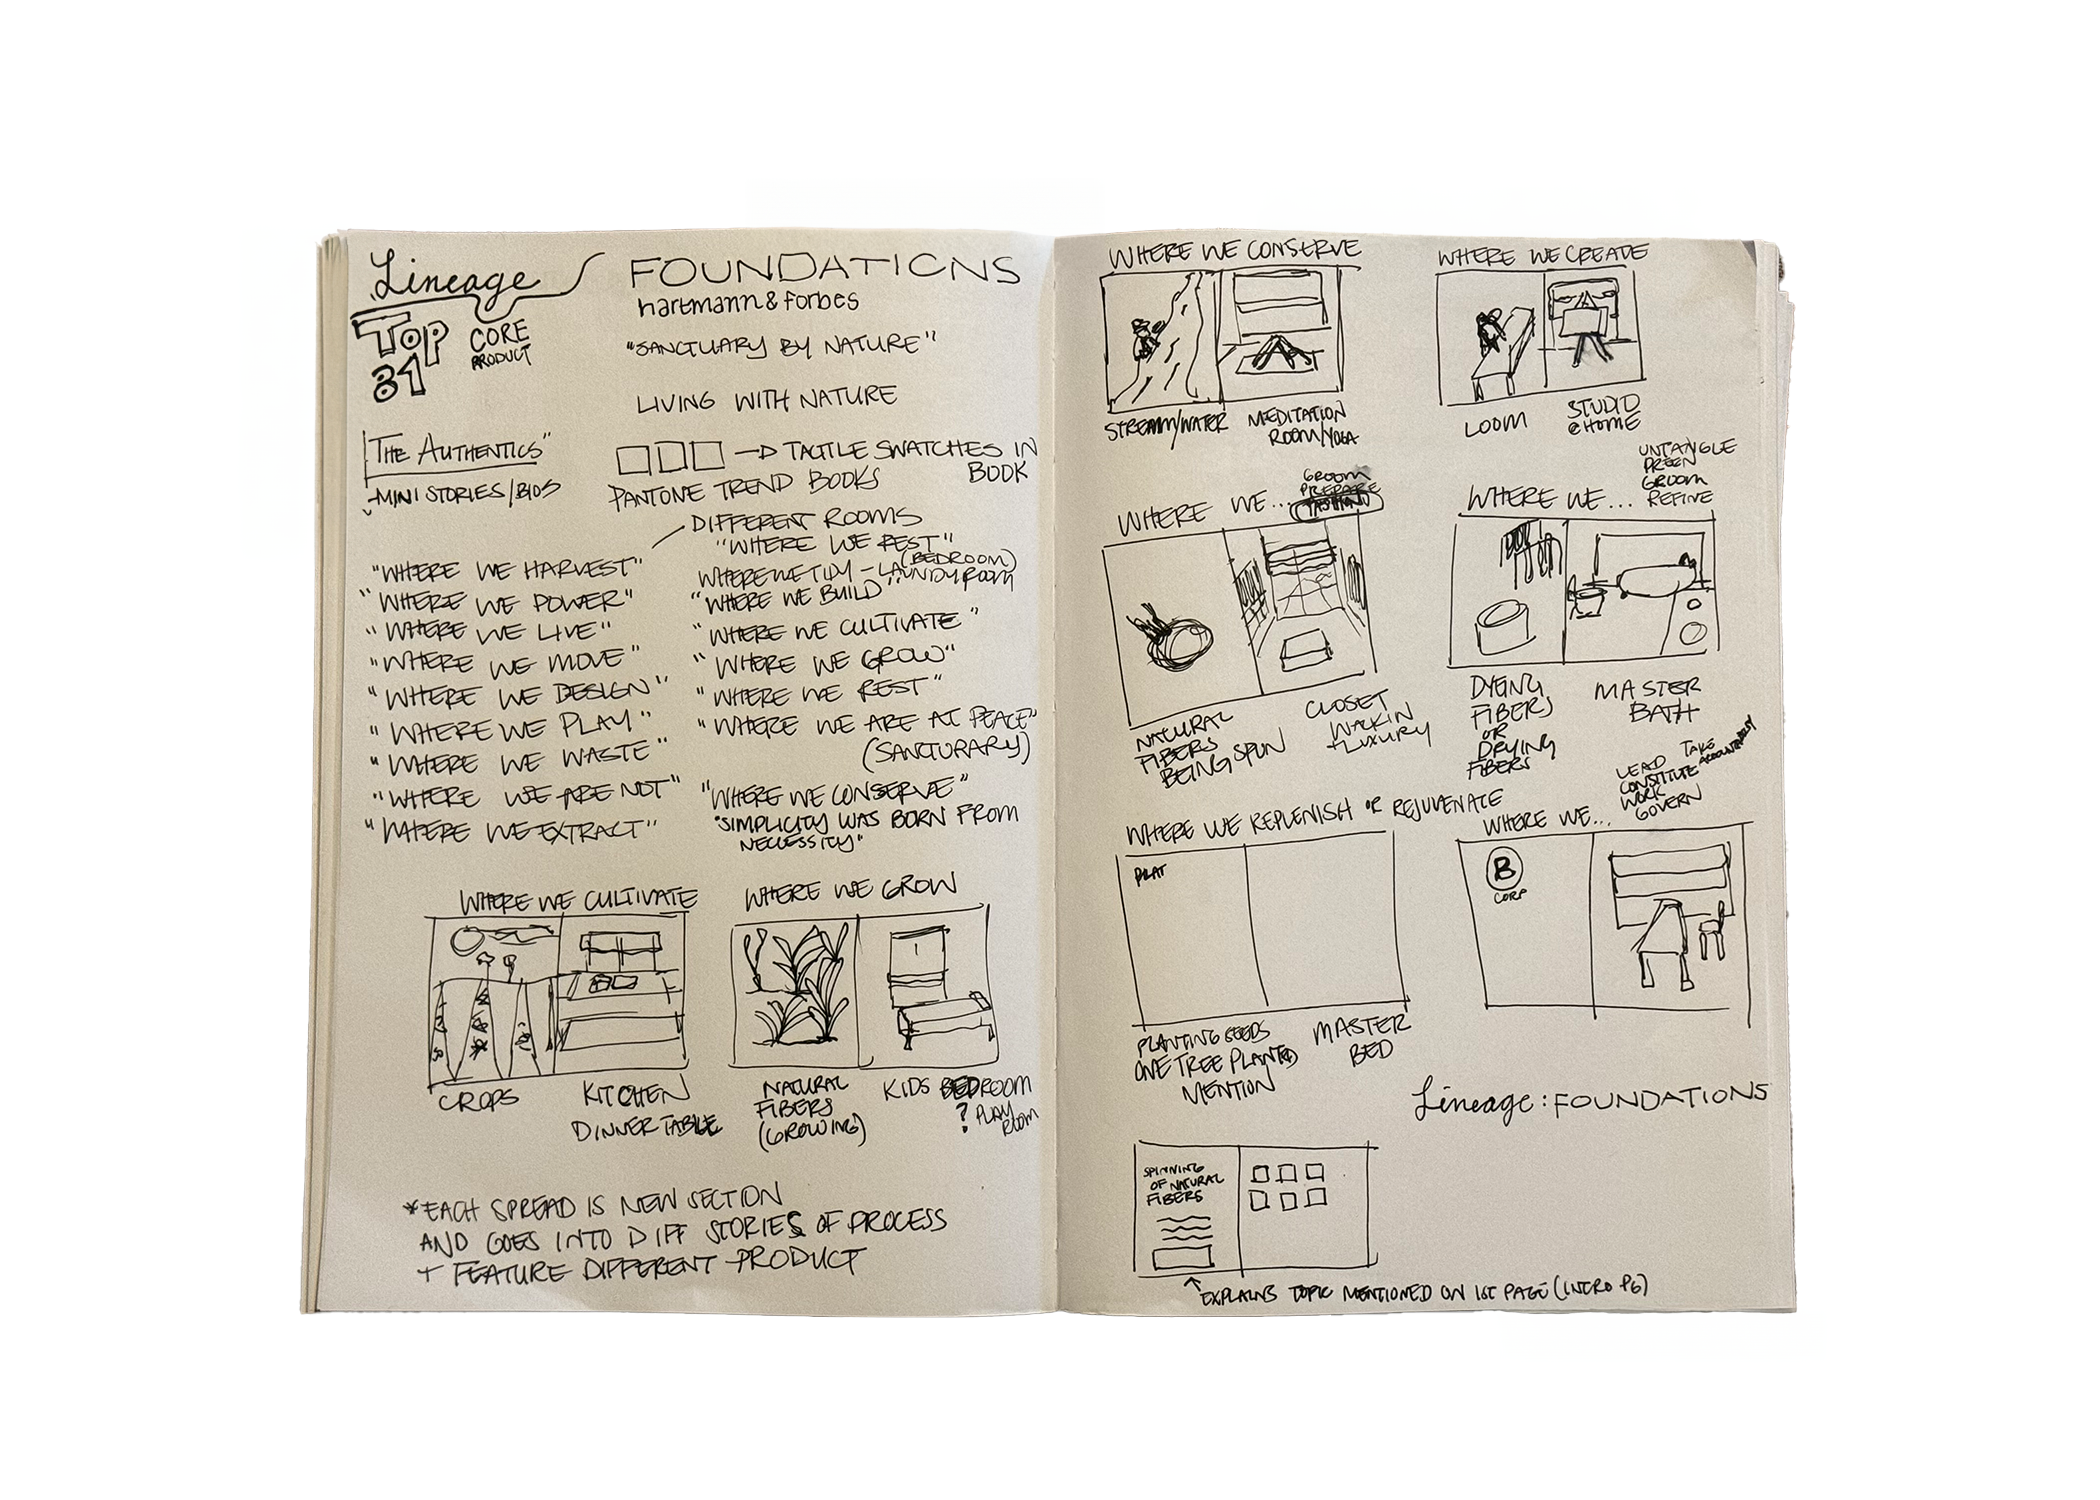 Lineage
FOUNDATIONS
hartmann & forbes
TOP
81
CORE
PRODUCT
"SANCTUARY BY NATURE"
LIVING WITH NATURE
"THE AUTHENTICS"
-MINI STORIES/BIOS
→ TACTILE SWATCHES IN
BOOK
PANTONE TREND BOOKS
DIFFERENT ROOMS
"WHERE WE REST"
(BEDROOM)
WHERE WE TIDY - LAUNDY ROOM
"WHERE WE BUILD"
"WHERE WE CULTIVATE"
"WHERE WE GROW"
"WHERE WE REST"
"WHERE WE ARE AT PEACE"
(SANCTURARY)
"WHERE WE CONSERVE"
"SIMPLICITY WAS BORN FROM
NECESSITY"
"WHERE WE HARVEST"
"WHERE WE POWER"
"WHERE WE LIVE"
"WHERE WE MOVE"
"WHERE WE DESIGN"
"WHERE WE PLAY"
"WHERE WE WASTE"
"WHERE WE ARE NOT"
"WHERE WE EXTRACT"
WHERE WE CULTIVATE
CROPS
KITCHEN
DINNER TABLE
WHERE WE GROW
NATURAL
FIBERS
(GROWING)
KIDS BEDROOM
? PLAY
ROOM
*EACH SPREAD IS NEW SECTION
AND GOES INTO DIFF STORIES OF PROCESS
+ FEATURE DIFFERENT PRODUCT
WHERE WE CONSERVE
STREAM/WATER
MEDITATION
ROOM/YOGA
WHERE WE CREATE
LOOM
STUDIO
@ HOME
WHERE WE...
GROOM
PREPARE
NATURAL
FIBERS
BEING SPUN
CLOSET
WALKIN
+ LUXURY
WHERE WE...
UNTANGLE
PREEN
GROOM
REFINE
DYEING
FIBERS
OR
DRYING
FIBERS
MASTER
BATH
WHERE WE REPLENISH OR REJUVENATE
PLANTING SEEDS
ONE TREE PLANTED
MENTION
MASTER
BED
WHERE WE...
LEAD
CONSTITUTE
WORK
GOVERN
TAKE
ACCOUNTABILITY
B
CORP
Lineage: FOUNDATIONS
SPINNING
OF NATURAL
FIBERS
EXPLAINS TOPIC MENTIONED ON 1ST PAGE (INTRO PG)